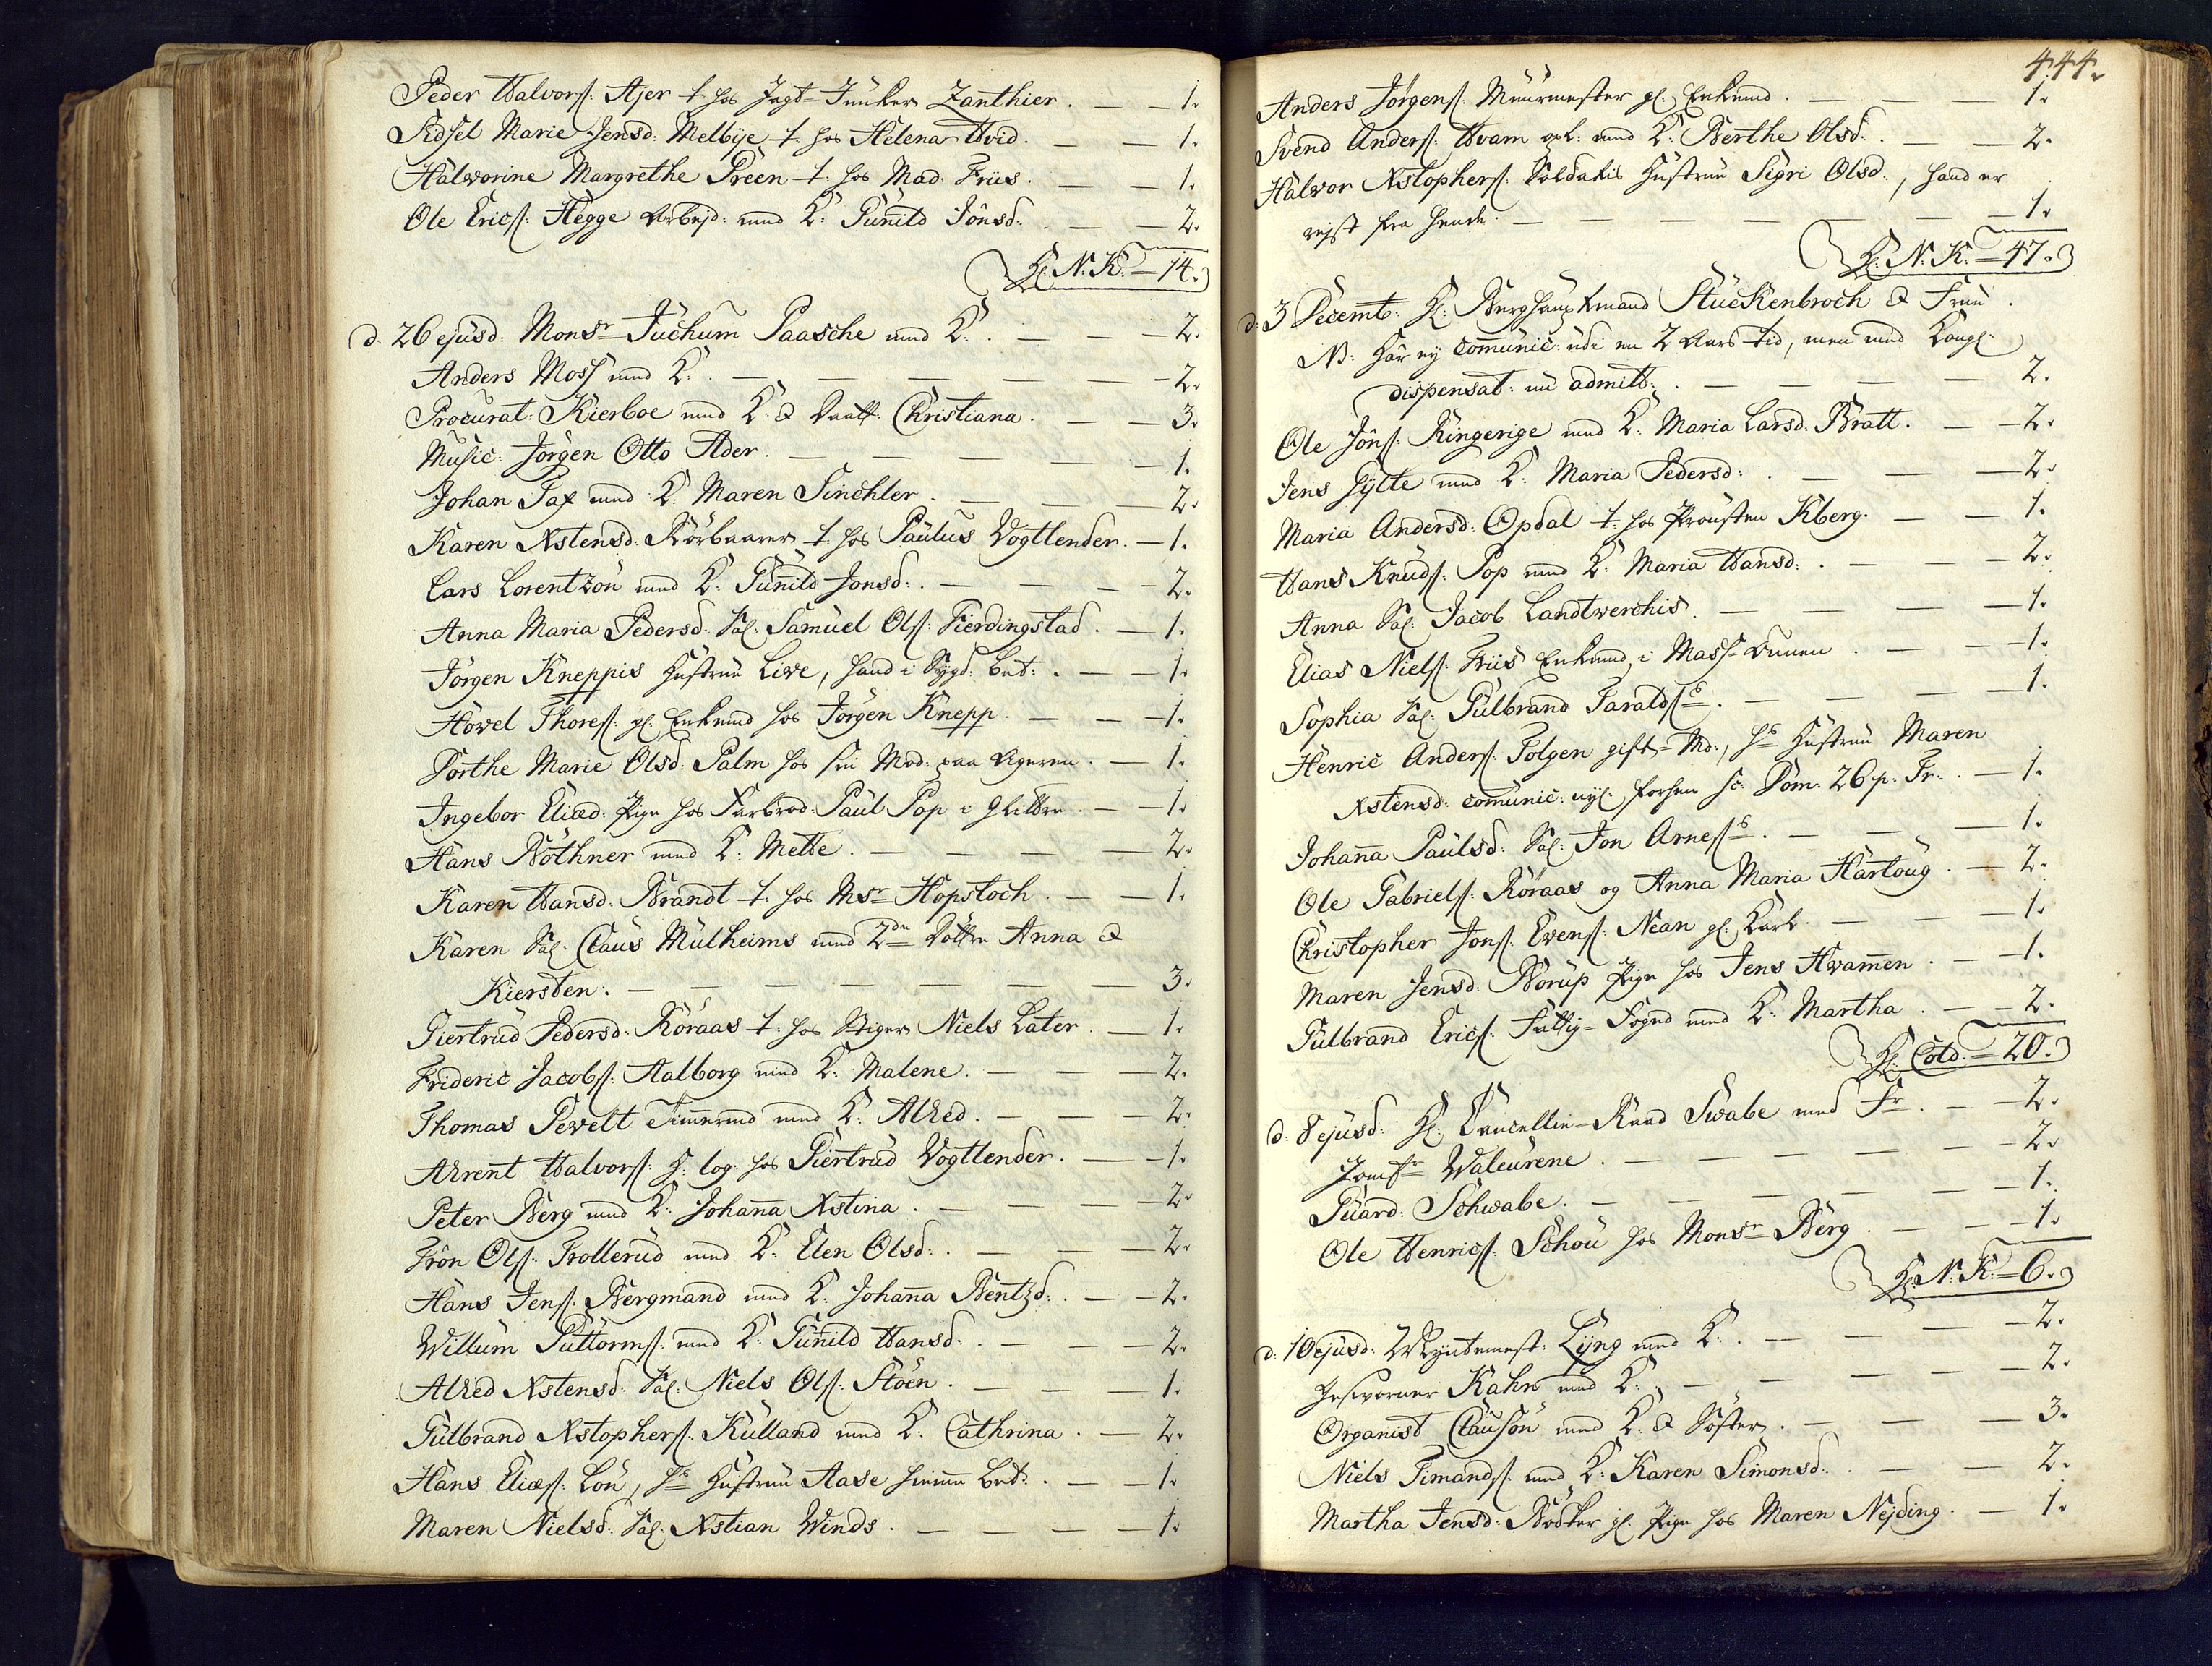 Peder Halvors: Ajer t. hos Jagt-Juncker Zanthier. — 1.
Sidsel Marie Jensd: Melbye t. hos Helena Hvid. — — 1.
Halvorine Margrethe Preen t. hos Mad. Friis. — — 1.
Ole Erics: Hegge Arbejd: med K: Gunild Jonsd: — — 2.
N. K. = 14.
d. 26 ejusd: Monsr Juchum Paasche med K: — — — 2.
Anders Moss med K: — — — — — — 2.
Procurat: Kierboe med K: & Daatt: Christiana. — — 3.
Music: Jörgen Otto Ader. — — — — — 1.
Johan Fax med K: Maren Sinchler. — — — 2.
Karen Xstensd: t. hos Paulus Vogtlender. — 1.
Lars Lorentzon med K: Gunild Jonsd: — — — 2.
Anna Maria Pedersd: Sal: Samuel Ols: Fierdingstad. — 1.
Jörgen Kneppis Hustrue Live, hand i Sygd: bet: — — 1.
Hovel Thores: gl: Enkemd hos Jörgen Knepp. — — 1.
Dorthe Marie Olsd: Palm hos sin Mod: paa Ageren. — 1.
Ingebor Eliæd: Pige hos Farbrod: Paul Pop i — 1.
Hans Böthner med K: Mette. — — — — 2.
Karen Hansd: Brandt t. hos Msr Hopstoch. — — 1.
Karen Sal: Claus Mulheims med 2de Döttre Anna &
Kiersten: — — — — — — — 3.
Giertrud Pedersd: Röraas t. hos Stiger Niels Later. — 1.
Frideric Jacobs: Aalborg med K: Malene. — — — 2.
Thomas Pewelt Timermd med K: Alhed. — — — 2.
Ahrent Halvors: log: hos Giertrud Vogtlender. — — 1.
Peter Berg med K: Johana Xstina. — — — — 2.
Fron Ols: Trollerud med K: Elen Olsd: — — — 2.
Hans Jens: Bergmand med K: Johana Bentzd: — — 2.
Willum Guttorms: med K: Gunild Hansd: — — — 2.
Alhed Xstensd: Sal: Niels Ols: Stöen. — — — 1.
Gulbrand Xstophers: Kulland med K: Cathrina. — 2.
Hans Eliæs: Lou, hs Hustrue Aase hiemme bet: — — 1.
Maren Nielsd: Sal: Xstian Winds. — — — — 1.
444.
Anders Jörgens: Muurmester gl: Enkemd. — — — 1.
Svend Anders: Hvam med K: Berthe Olsd: — — 2.
Halvor Xstophers: Soldatis Hustrue Sigri Olsd:, hand er
rejst fra hende. — — — — — — 1.
N. K. = 47.
d. 3 Decemb: Hr: Berghauptmand Stuckenbroch & Frue.
NB: har ej comunic: udi en 2 Aars tid, men med Kongl:
dispensat: nu admitt: — — — — 2.
Ole Jöns: Ringerige med K: Maria Larsd: Bratt. — 2.
Jens Gytte med K: Maria Pedersd: — — — 2.
Maria Andersd: Opdal t. hos Provsten Kberg. — — 1.
Hans Knuds: Pop med K: Maria Hansd: — — — 2.
Anna Sal: Jacob Landtwerchis. — — — — 1.
Elias Niels: Friis Enkemd i — — 1.
Sophia Sal: Gulbrand Taralds: — — — — 1.
Henric Anders: Folgen gift-Md:, hs Hustrue Maren
Xstensd: comunic: nyl: forhen sc: Dom: 26 p. Tr: — 1.
Johana Paulsd: Sal: Jon Arnes: — — — — 1.
Ole Gabriels: Röraas og Anna Maria Hartoug. — 2.
Christopher Jons: Evens: Nean gl: Karl. — — 1.
Maren Jensd: Borup Pige hos Jens Hvamen. — — 1.
Gulbrand Erics: Fattig-Foged med K: Martha. — — 2.
Cold: = 20.
d. 8 ejusd: Hr: Cancellie-Raad Swabe med Fr: — — 2.
Jomfr Waleurene. — — — — — 2.
Guard: Schwabe. — — — — — 1.
Ole Henrics: Schou hos Monsr Berg. — — — 1.
N. K. = 6.
d. 10 ejusd: Myntemest: Lyng med K: — — — 2.
Geschworner Kahrs med K: — — — — 2.
Organist Clauson med K: & Söster. — — — 3.
Niels Timands: med K: Karen Simonsd: — — 2.
Martha Jensd: Bödker gl: Pige hos Maren Nejding. — 1.